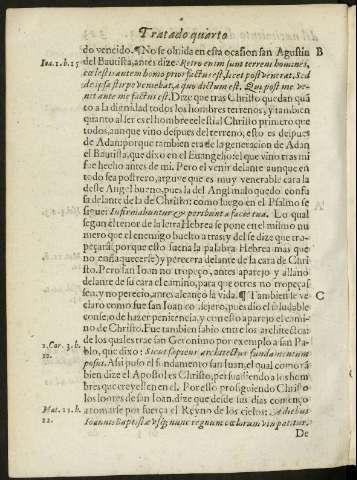 Tratado quarto
do vencido. ¶ No se oluida en esta ocasion san Agustin B
Ioa. 1. b. 15 del Bautista, antes dize: Retro enim sunt terreni homines,
cœlestis autem homo prior factus est, licet post venerat. Sed
de ipsa stirpe veniebat, a quo dictum est. Qui post me ve-
nit ante me factus est. Dize que tras Christo quedan quã
to a la dignidad todos los hombres terrenos, y tambien
quanto al ser es el hombre celestial Christo primero que
todos, aunque vino despues del terreno, esto es despues
de Adam: porque tambien era de la generacion de Adan
el Bautista, que dixo en el Euangelio: el que vino tras mi
fue hecho antes de mi. Pero el venir delante aunque en
todo sea postrero, arguye que es muy venerable cara la
deste Angel bueno, pues la del Angel malo quedo confu
sa delante de la de Christo: como luego en el Psalmo se
sigue: Infirmabuntur & peribunt a facie tua. Lo qual
segun el tenor de la letra Hebrea se pone en el mismo nu
mero que el enemigo buelto atras: y del se dize que tro-
peçarà (porque esto suena la palabra Hebrea mas que
no enflaquecerse) y perecera delante de la cara de Chris
to. Pero san Ioan no tropeço, antes aparejo y allano
delante de su cara el camino, para que otros no tropeças
sen, y no perecio, antes alcanço la vida. ¶ Tambien se ve C
claro como fue san Ioan consejero, pues dio el saludable
consejo de hazer penitencia, y con esto aparejo el cami-
no de Christo. Fue tambien sabio entre los architectos:
de los quales trae san Geronimo por exemplo a san Pa-
1. Cor. 3. b. blo, que dixo: Sicut sapiens architectus fundamentum
10. posui. Assi puso el fundamento san Iuan, el qual como tã
bien dize el Apostol es Christo, persuadiendo a los hom
bres que creyessen en el. Por esso prosiguiendo Christo
los loores de san Ioan, dize que desde sus dias començo
Mat. 11. b. a tomarse por fuerça el Reyno de los cielos: A diebus
12. Ioannis Baptistæ vsq; nunc regnum cœlorum vim patitur.
De